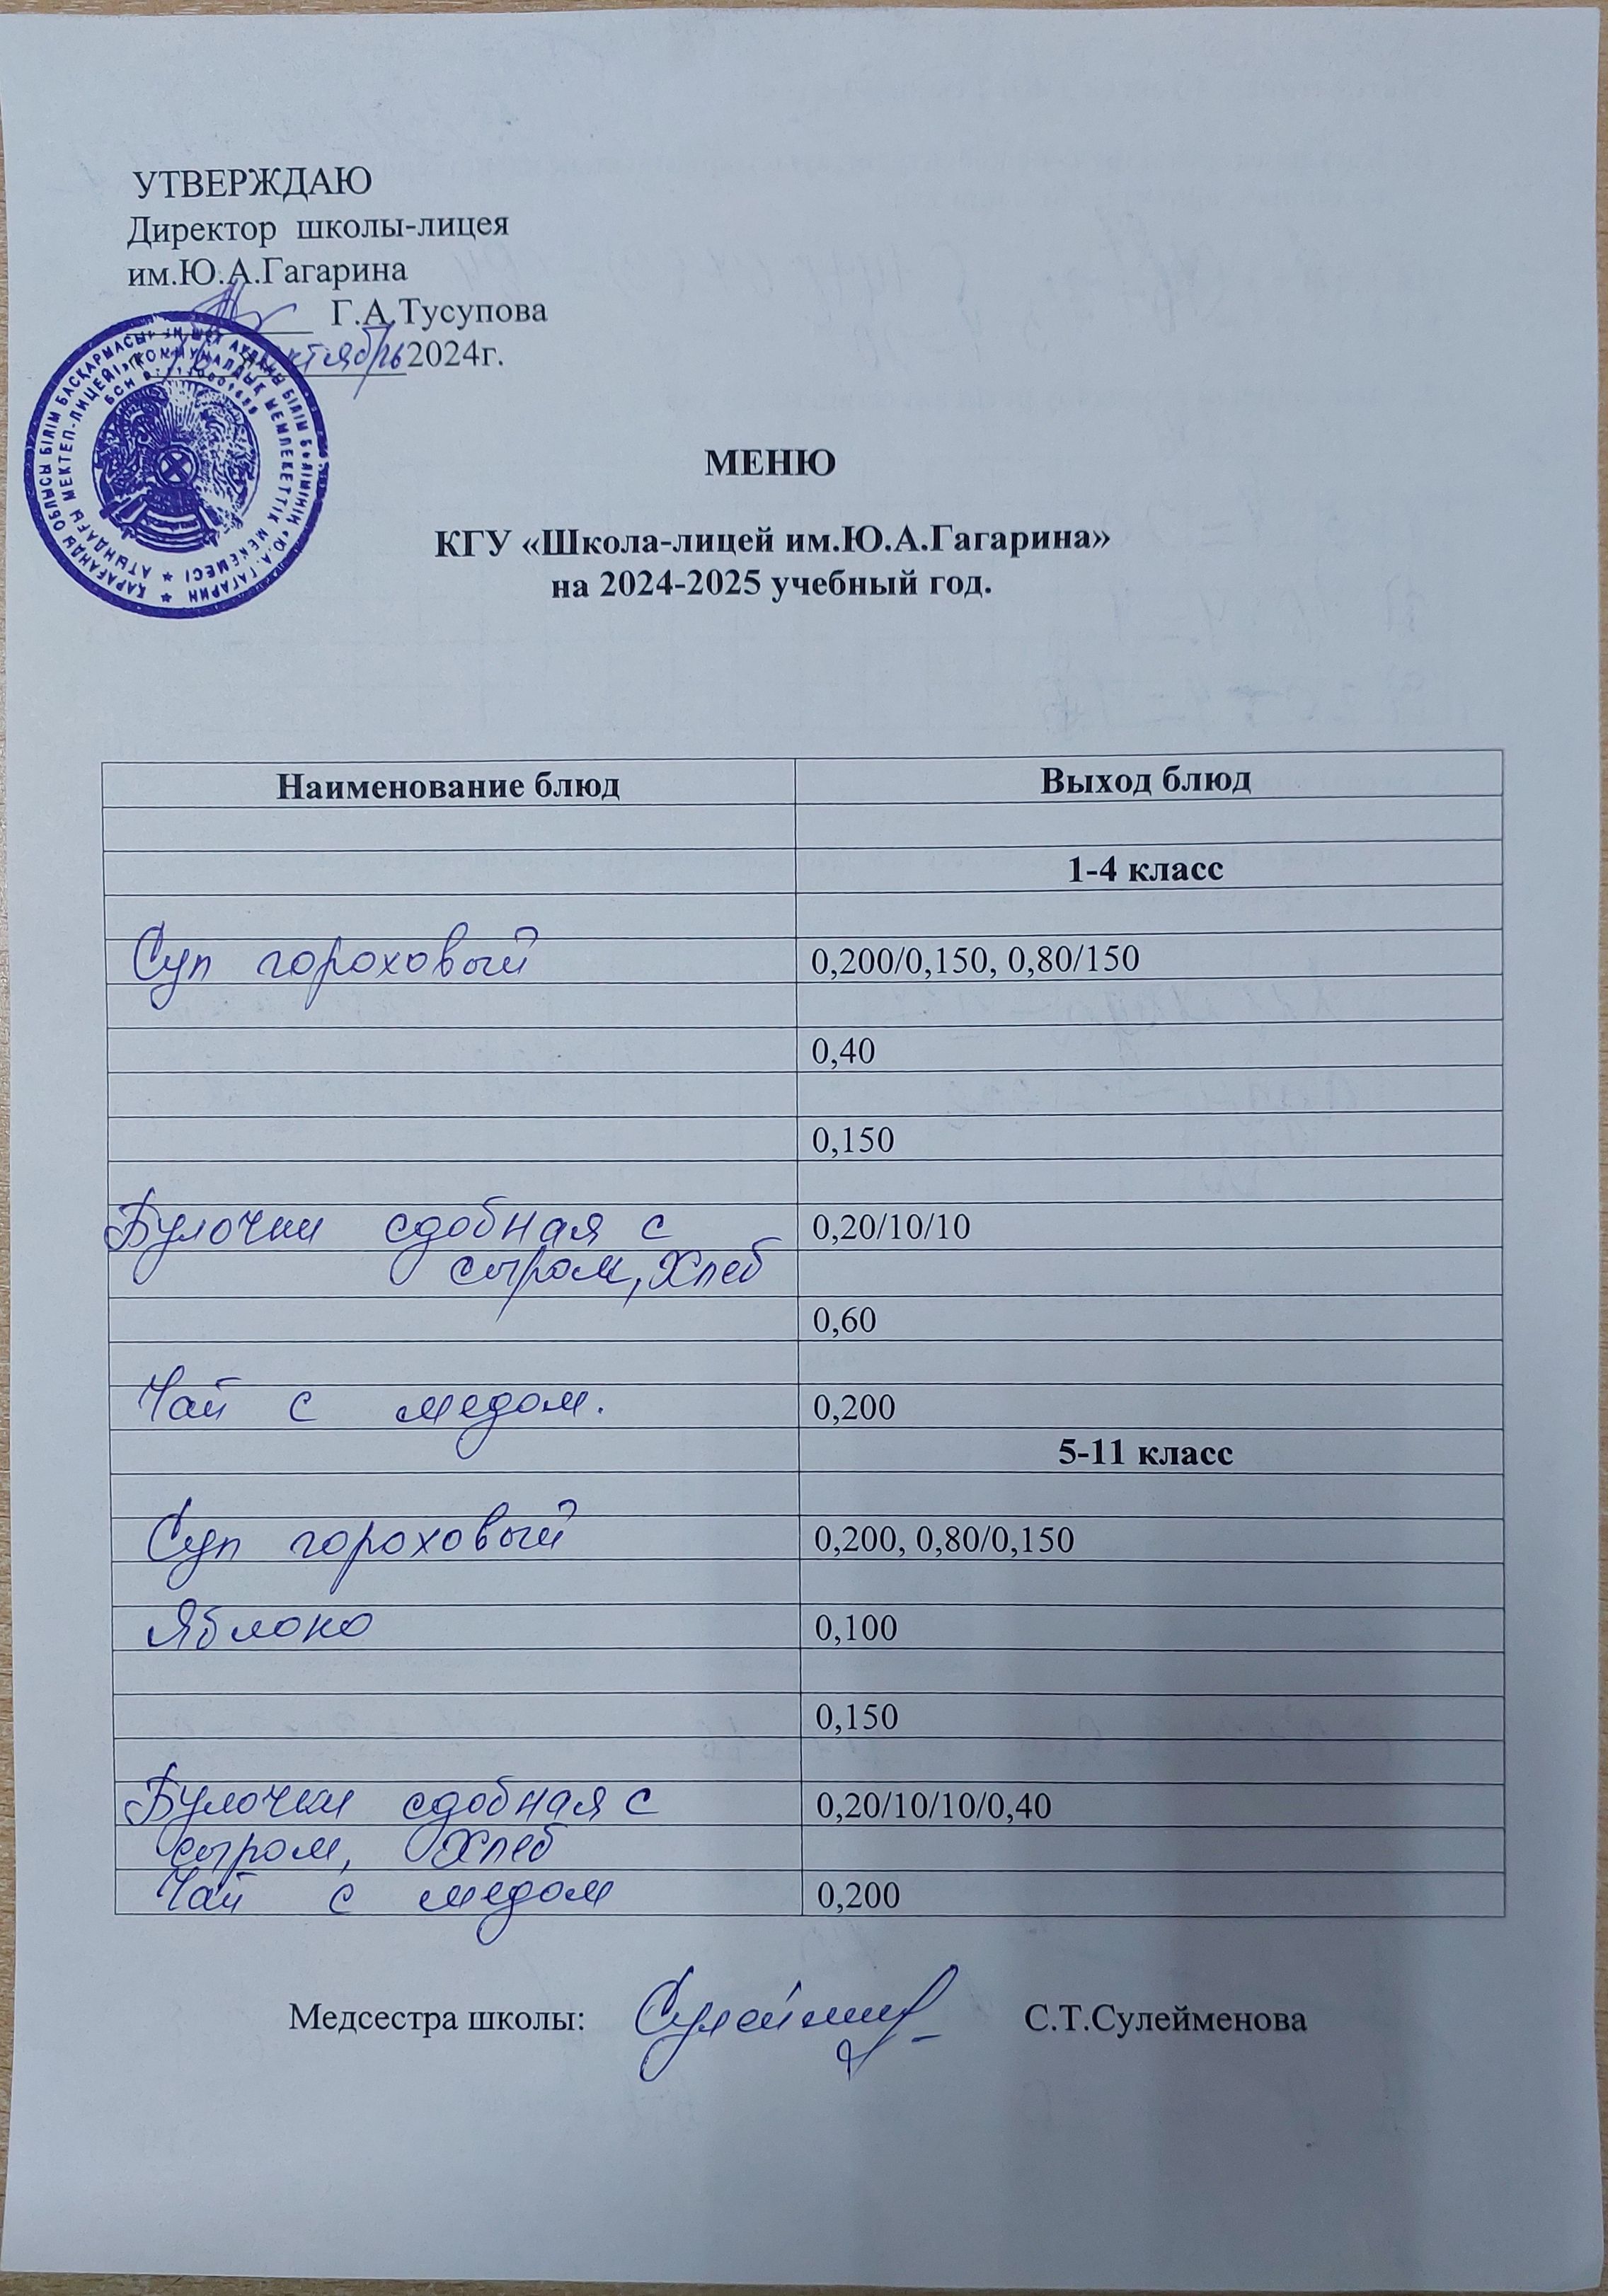 УТВЕРЖДАЮ
Директор школы-лицея
им.Ю.А.Гагарина
Г.А.Тусупова
октябрь 2024г.
МЕНЮ
КГУ «Школа-лицей им.Ю.А.Гагарина»
на 2024-2025 учебный год.
Наименование блюд Выход блюд
1-4 класс
Суп гороховый 0,200/0,150, 0,80/150
0,40
0,150
Булочки сдобная с 0,20/10/10
сыром, Хлеб
0,60
Чай с медом. 0,200
5-11 класс
Суп гороховый 0,200, 0,80/0,150
Яблоко 0,100
0,150
Булочки сдобная с 0,20/10/10/0,40
сыром, Хлеб
Чай с медом 0,200
Медсестра школы: С.Т.Сулейменова